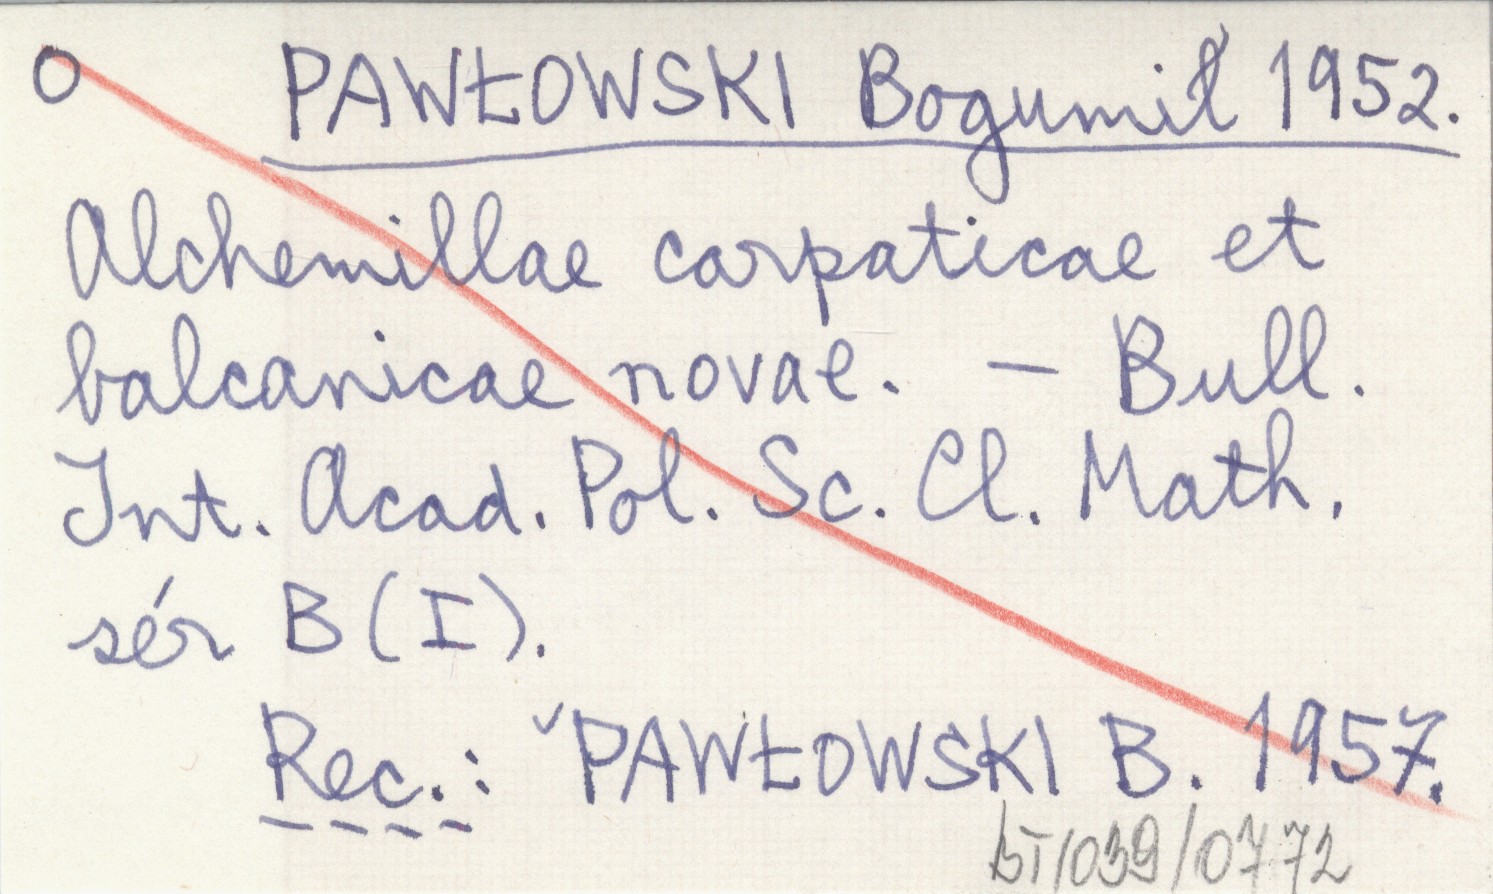 O PAWŁOWSKI Bogumił 1952.
Alchemillae carpaticae et
balcanicae novae. – Bull.
Int. Acad. Pol. Sc. Cl. Math.
sér B (I).
Rec.: ˇPAWŁOWSKI B. 1957.
bT/039/0772